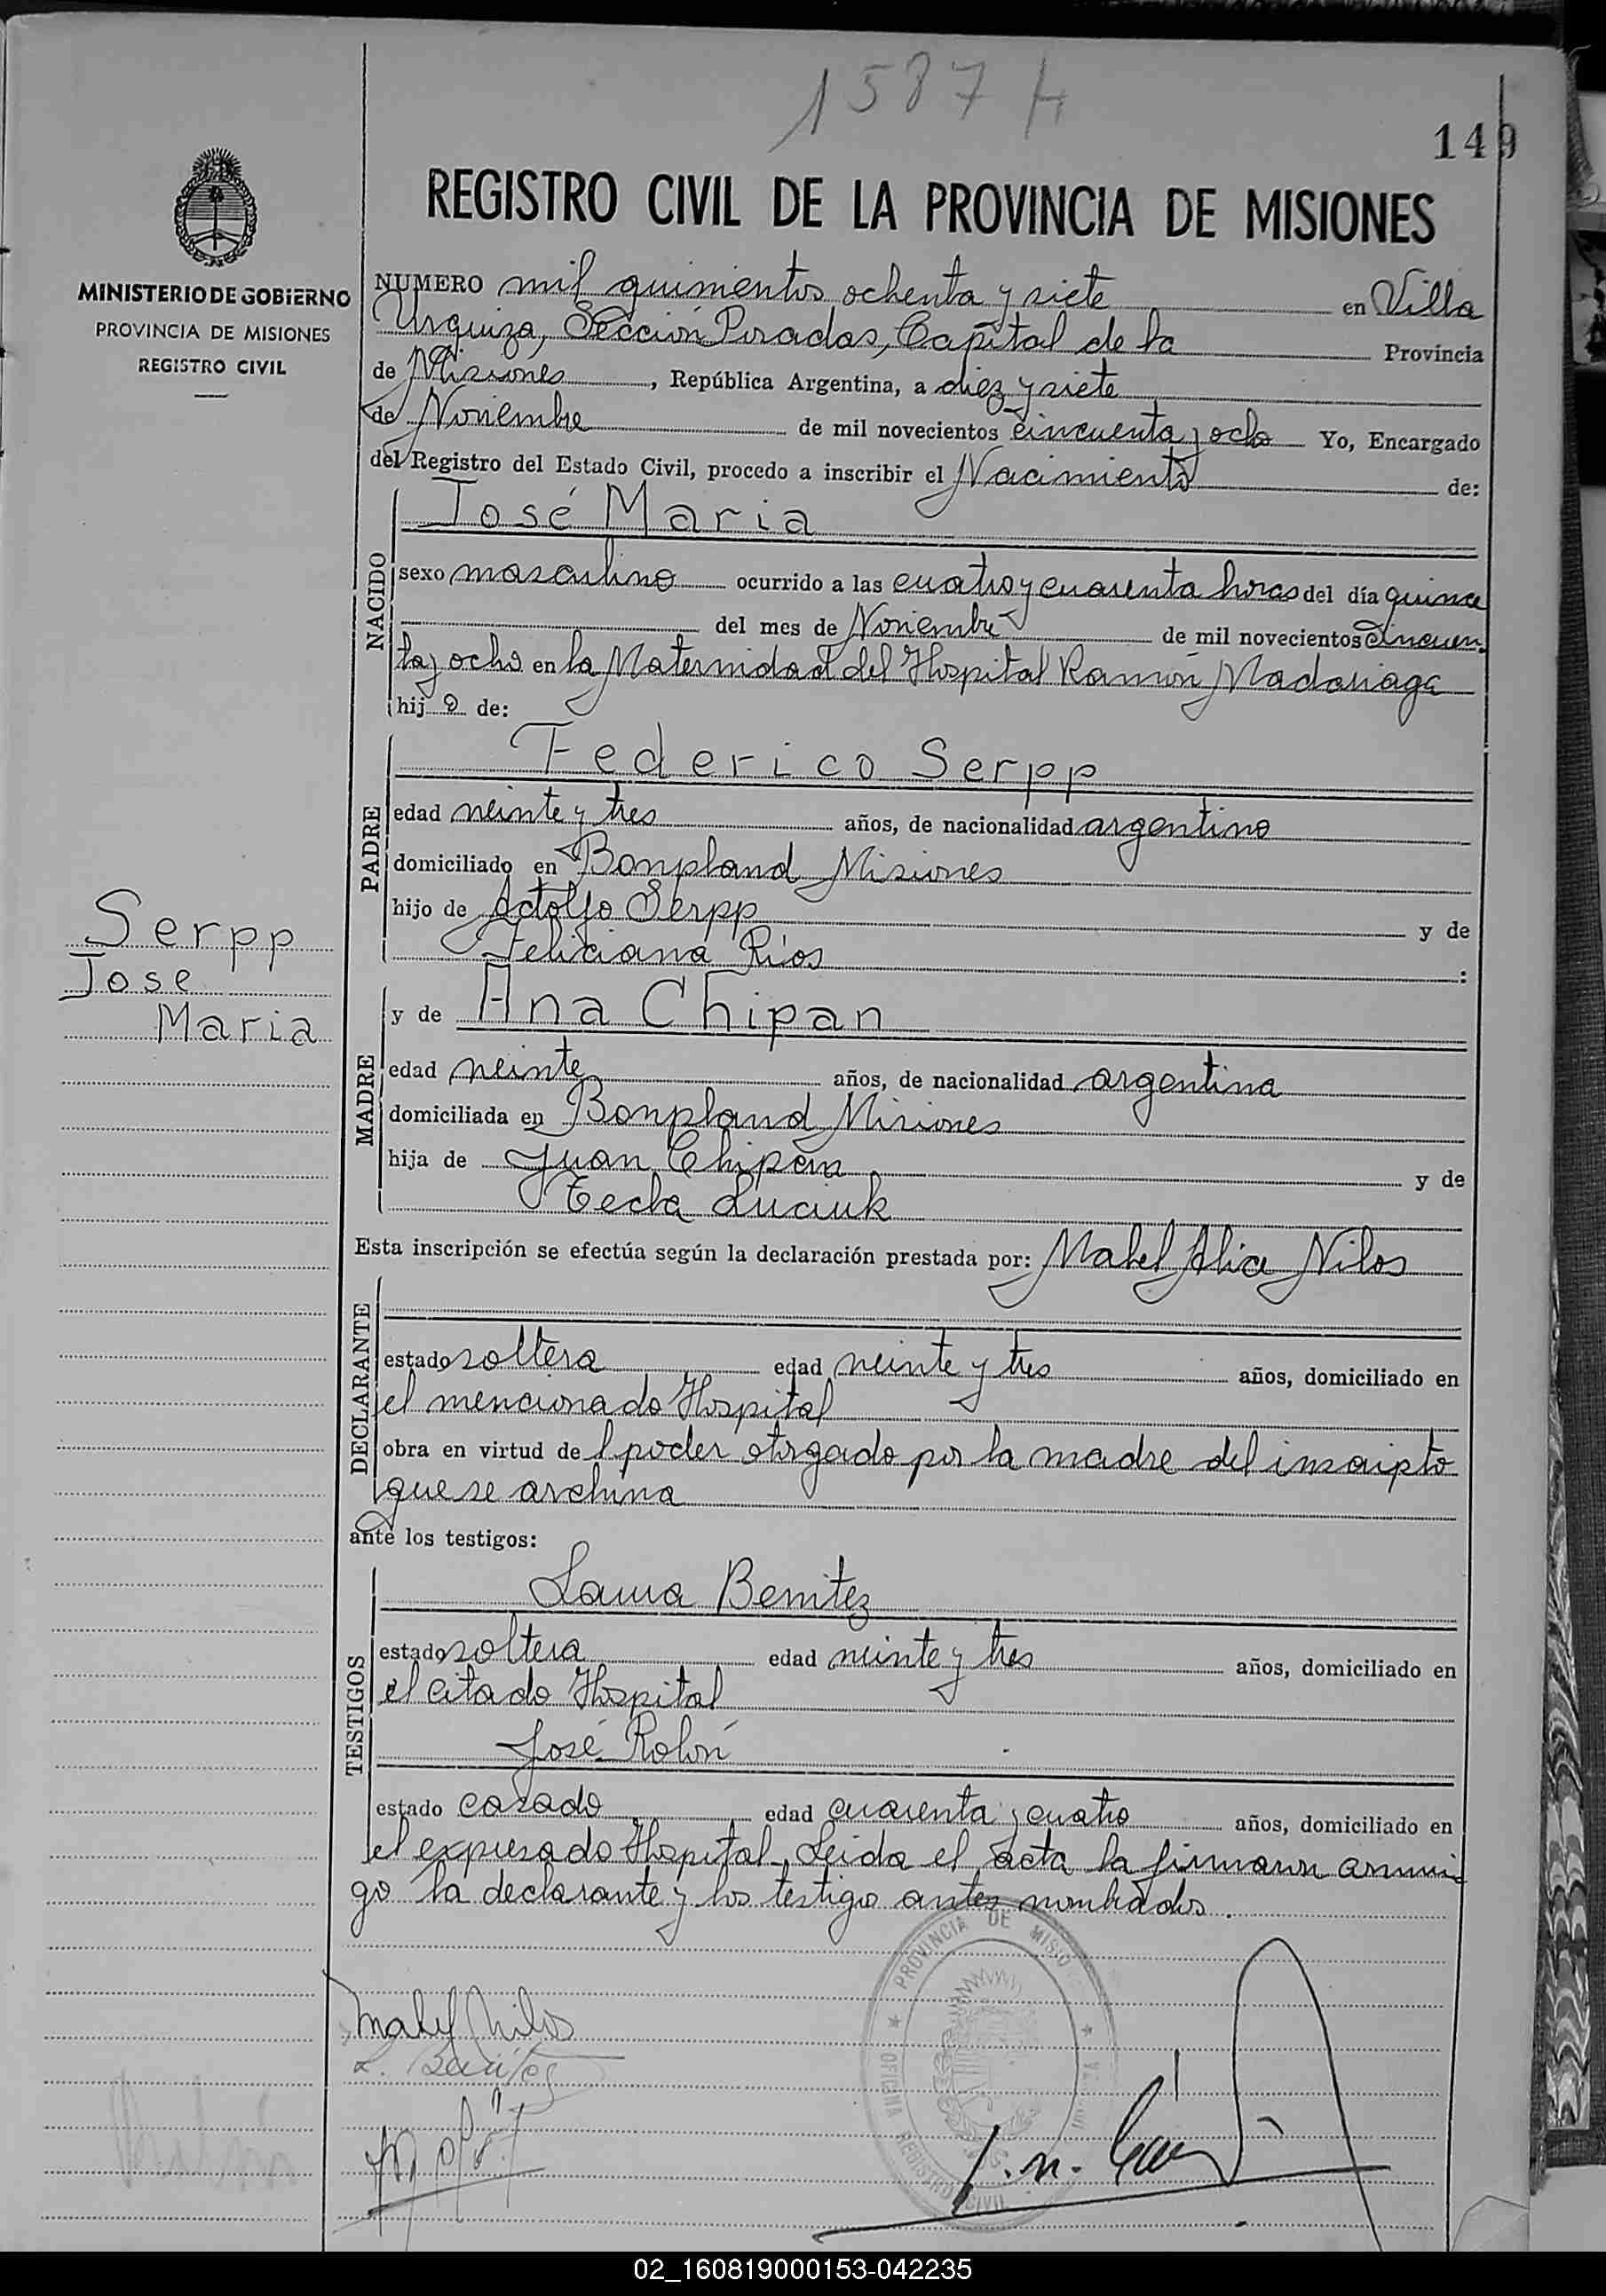 1587 H
149
REGISTRO CIVIL DE LA PROVINCIA DE MISIONES
MINISTERIO DE GOBIERNO
PROVINCIA DE MISIONES
REGISTRO CIVIL
NUMERO mil quinientos ochenta y siete en Villa
Urquiza, Sección Posadas, Capital de la Provincia
de Misiones, República Argentina, a diez y siete
de Noviembre de mil novecientos cincuenta y ocho Yo, Encargado
del Registro del Estado Civil, procedo a inscribir el Nacimiento de:
NACIDO
José Maria
sexo masculino ocurrido a las cuatro y cuarenta horas del día quince
del mes de Noviembre de mil novecientos cincuen
ta y ocho en la Maternidad del Hospital Ramón Madariaga
hijo de:
PADRE
Federico Serpp
edad veinte y tres años, de nacionalidad argentino
domiciliado en Bonpland Misiones
hijo de Adolfo Serpp y de
Feliciana Ríos :
Serpp
Jose
Maria
MADRE
y de Ana Chipan
edad veinte años, de nacionalidad argentina
domiciliada en Bonpland Misiones
hija de Juan Chipan y de
Tecla Luciuk
Esta inscripción se efectúa según la declaración prestada por: Mabel Alica Nilos
DECLARANTE
estado soltera edad veinte y tres años, domiciliado en
el mencionado Hospital
obra en virtud de l poder otorgado por la madre del inscripto
que se archiva
ante los testigos:
TESTIGOS
Laura Benitez
estado soltera edad veinte y tres años, domiciliado en
el citado Hospital
José Rolón
estado casado edad cuarenta y cuatro años, domiciliado en
el expresado Hospital. Leida el acta la firmaron conmi
go la declarante y los testigos antes nombrados.
Mabel Nilos
L. Benítez
PROVINCIA DE MISIO
OFICINA REGISTRO CIVIL
02_160819000153-042235